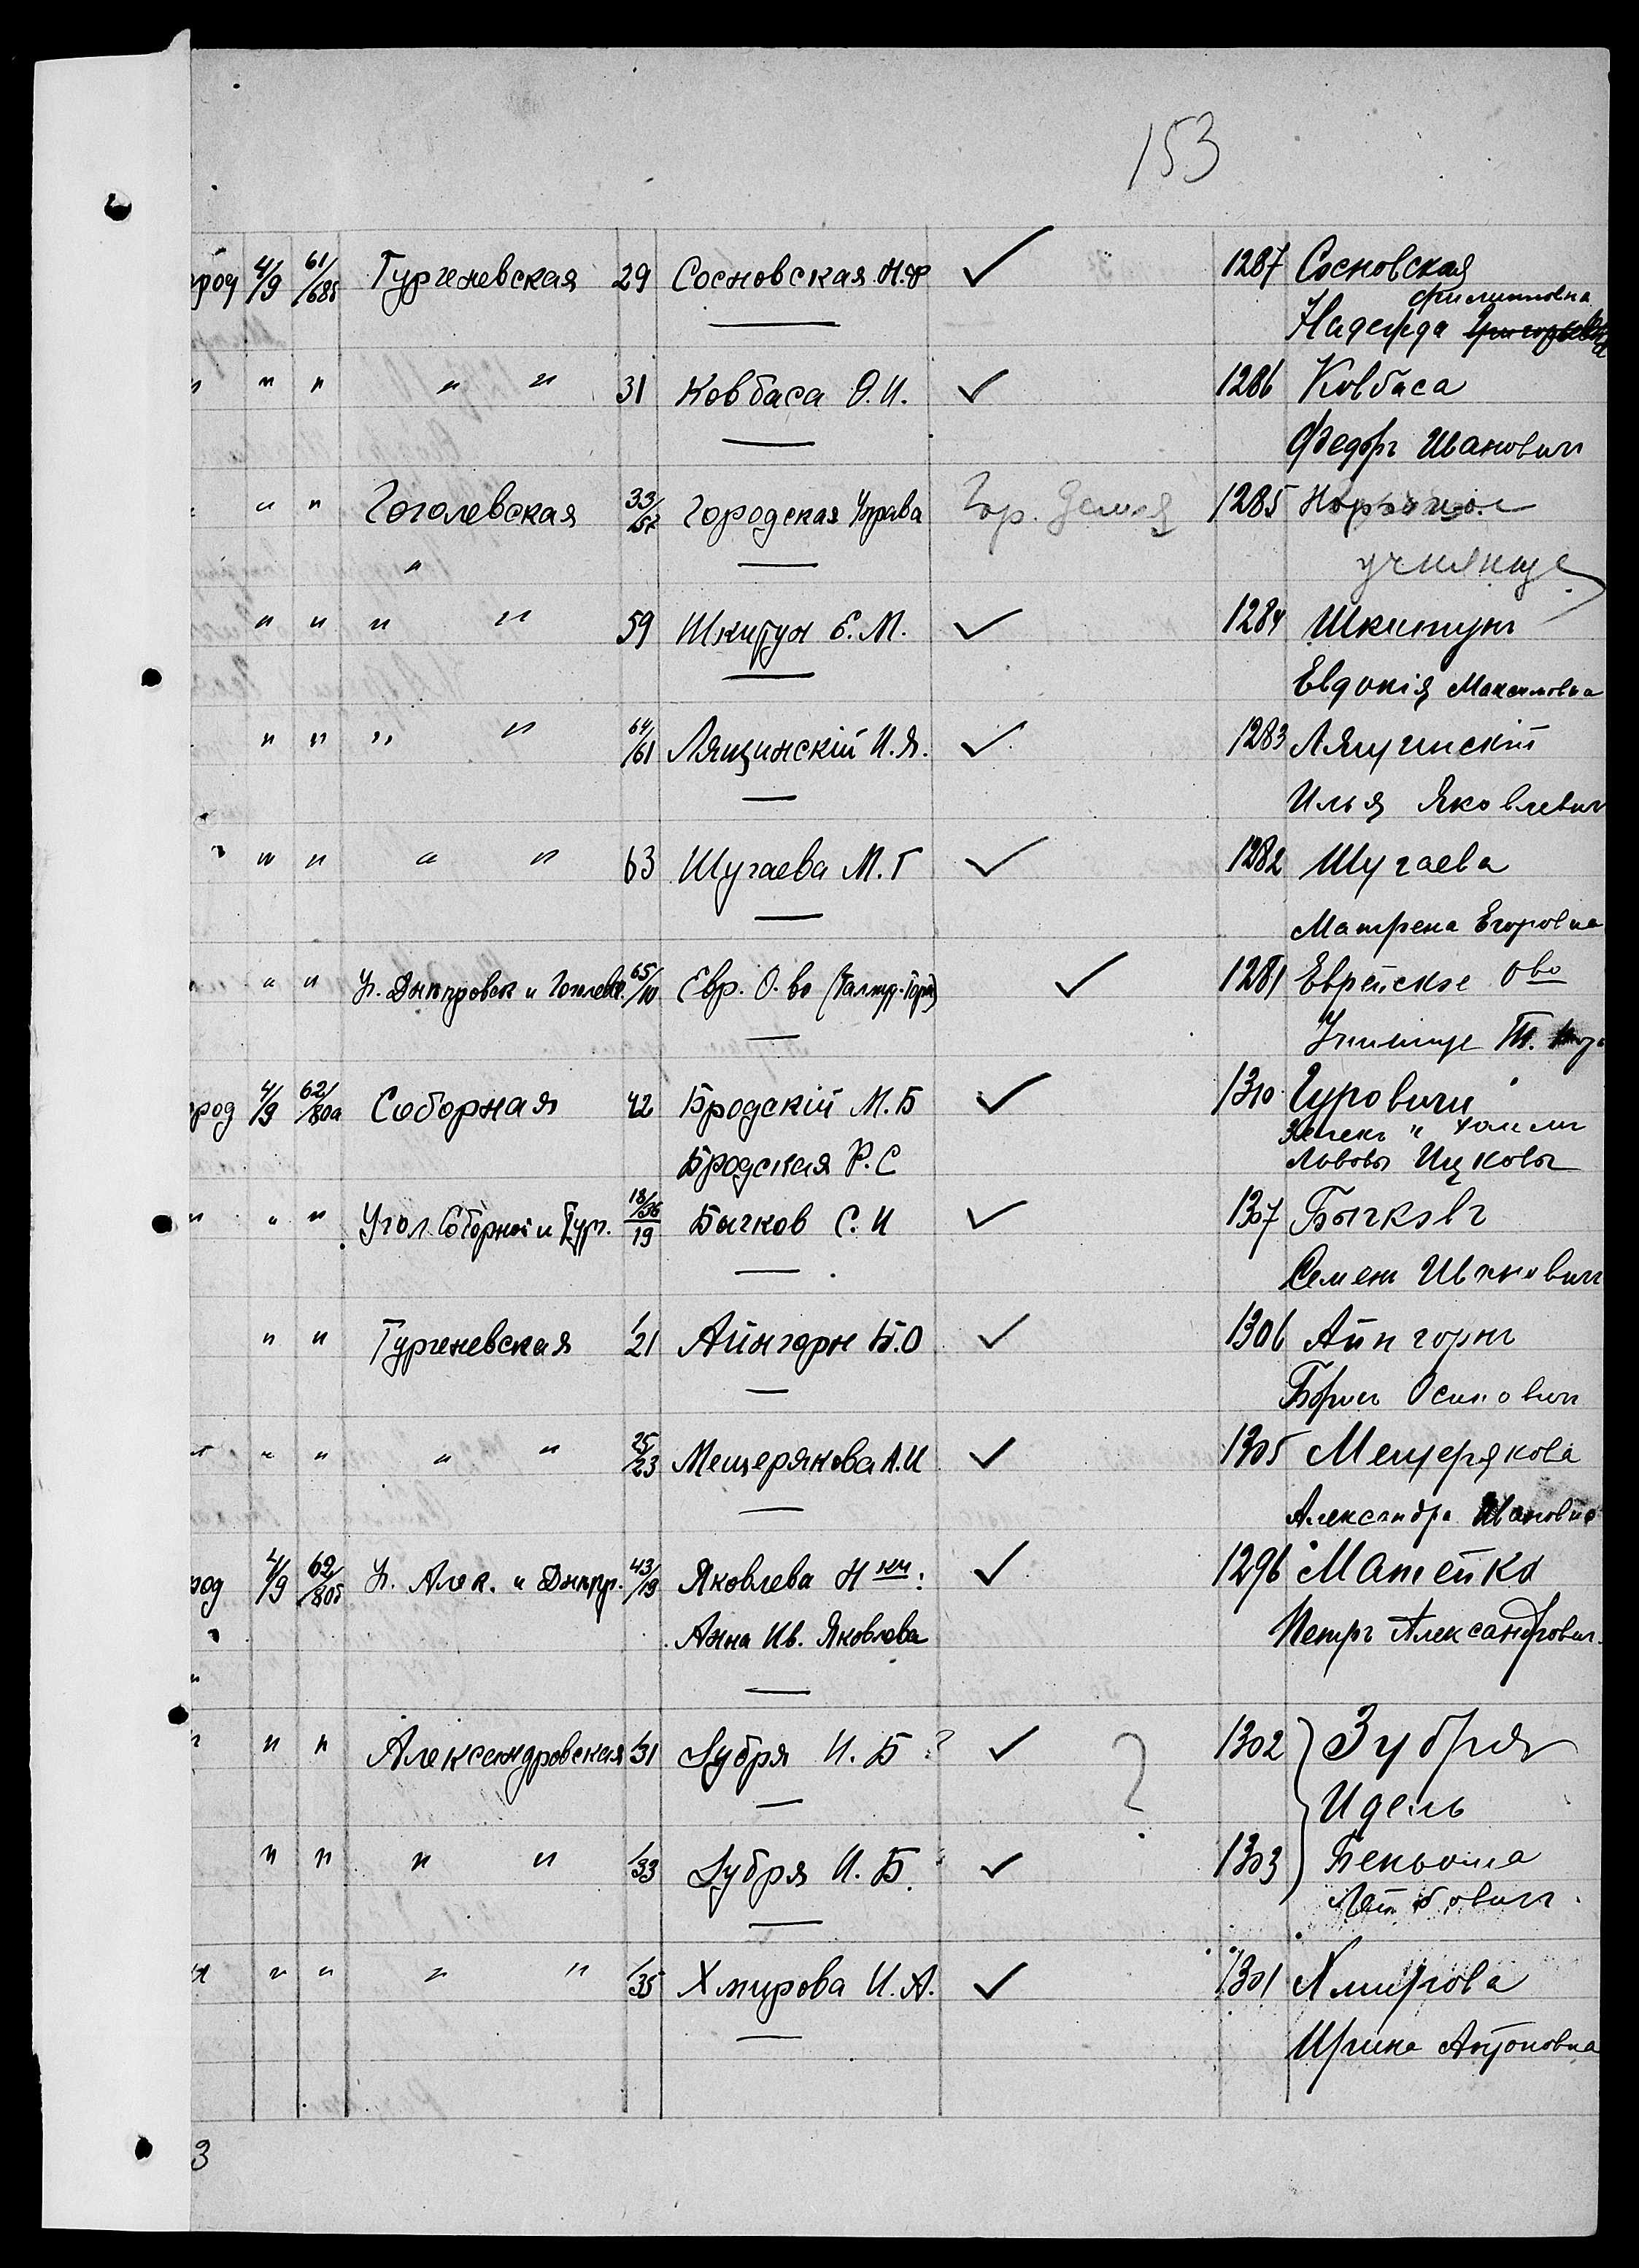 153
род 4/9 61/68б Тургеневская 29 Сосновская Н.Ф ✓ 1287 Сосновская
Филипповна
Надежда Григорьевна
" " " " " 31 Ковбаса Ф.И. ✓ 1286 Ковбаса
Федоръ Ивановичъ
" " Гоголевская 33/57 Городская Управа Гор. Земля 1285
" училище
" " " " 59 Шкитун Е.М. ✓ 1284 Шкитунъ
Евдокія Максимовна
" " " " 64/61 Лящинскій И.Я. ✓ 1283 Лящинскій
Илья Яковлевич
" " " " 63 Шугаева М.Г ✓ 1282 Шугаева
Матрена Егоровна
" " У. Днѣпровск и Гоголевс. 65/10 Евр. О-во (Талмуд-Тора) ✓ 1281 Еврейское Ово
Училище Т.
род 4/9 62/80а Соборная 42 Бродскій М.Б ✓ 1310 Гуровичи
Бродская Р.С Лововы Ицковы
" " " Угол. Соборной и Тург. 18/36/19 Бычков С.И ✓ 1307 Бычковъ
Семенъ Ивановичъ
" " Тургеневская 21 Айнгорн Б.О ✓ 1306 Айнгорнъ
Борисъ Осиповичъ
" " " " 25/23 Мещерякова А.И ✓ 1305 Мещерякова
Александра Ивановна
род 4/9 62/80б У. Алек. и Днѣпр. 43/19 Яковлева Н-ки: ✓ 1296 Матейко
Анна Ив. Яковлева Петръ Александрович.
" " Александровская 31 Зубря И.Б ? ✓ ? 1302 Зубря
Идель
" " " " 33 Зубря И.Б. ✓ 1303 Беньома
Лейбович
" " " " 35 Хмырова И.А. ✓ 1301 Хмырова
Ирина Антоновна
3